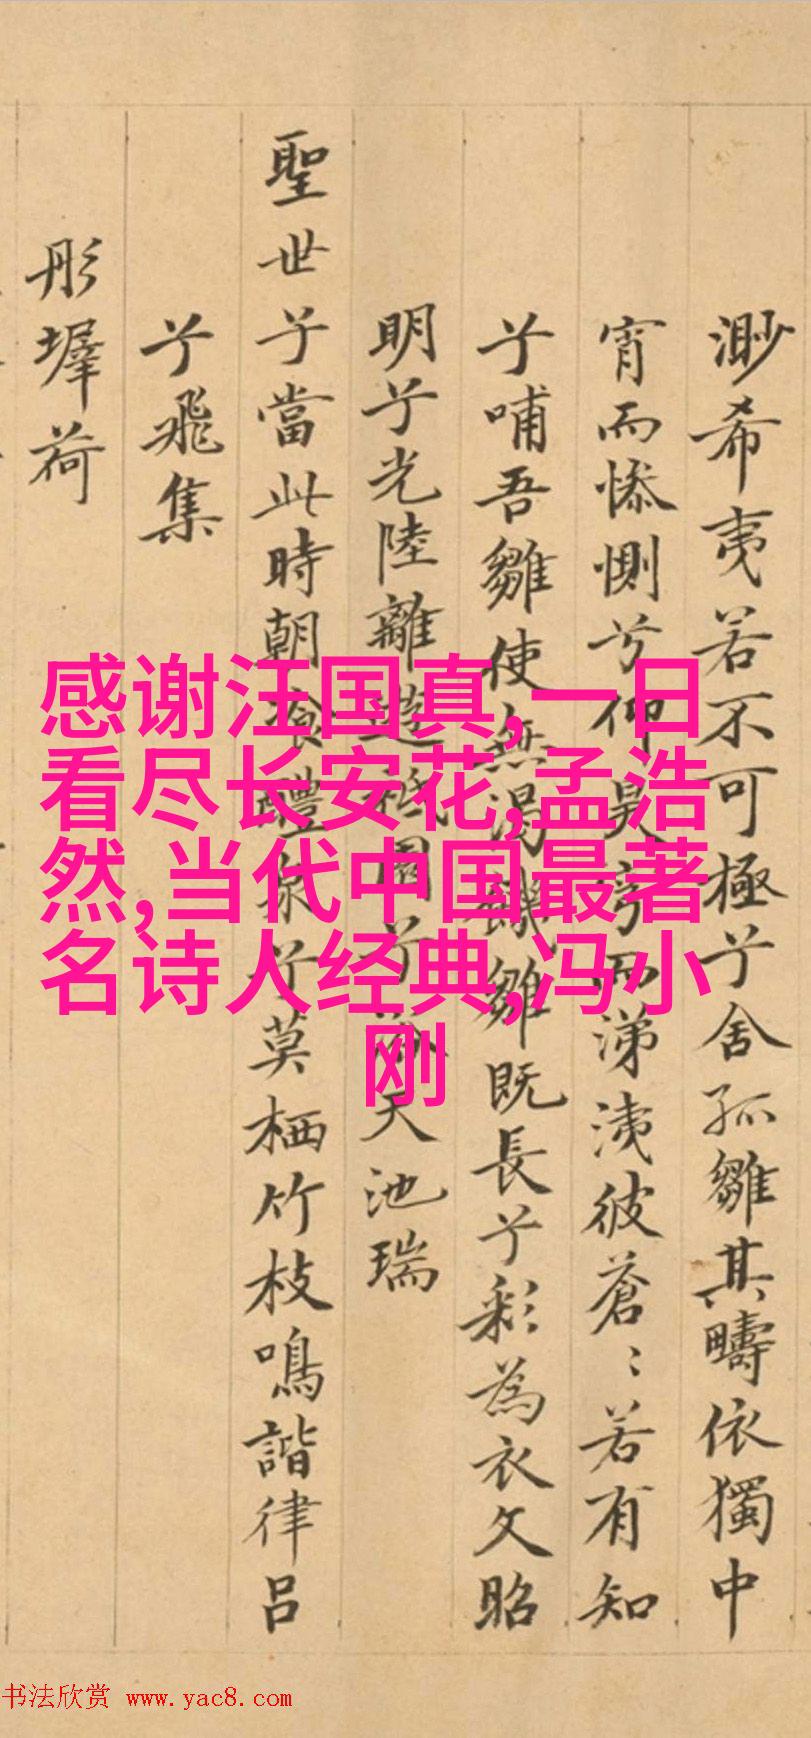 渺希夷若不可極兮舍孤雛其疇依獨中
宵而惨惻兮仰昊穹而涕洟彼蒼〻若有知
兮哺吾雛使無渴饑雛既長兮彩為衣文昭
明兮光陸離遊祗園兮浴天池瑞
聖世兮當此時朝飡醴泉兮莫栖竹枝鳴諧律呂
兮飛集
彤墀荷
感谢汪国真,一日
看尽长安花,孟浩
然,当代中国最著
名诗人经典,冯小
刚
书法欣赏 www.yac8.com